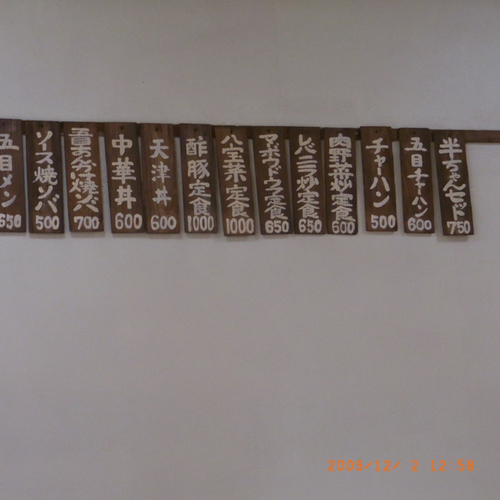 五目メン
650
ソース焼ソバ
500
五目あんかけ焼ソバ
700
中華丼
600
天津丼
600
酢豚定食
1000
八宝菜定食
1000
マーボウドウフ定食
650
レバニラ炒定食
650
肉野菜炒定食
600
チャーハン
500
五目チャーハン
600
半ちゃんセット
750